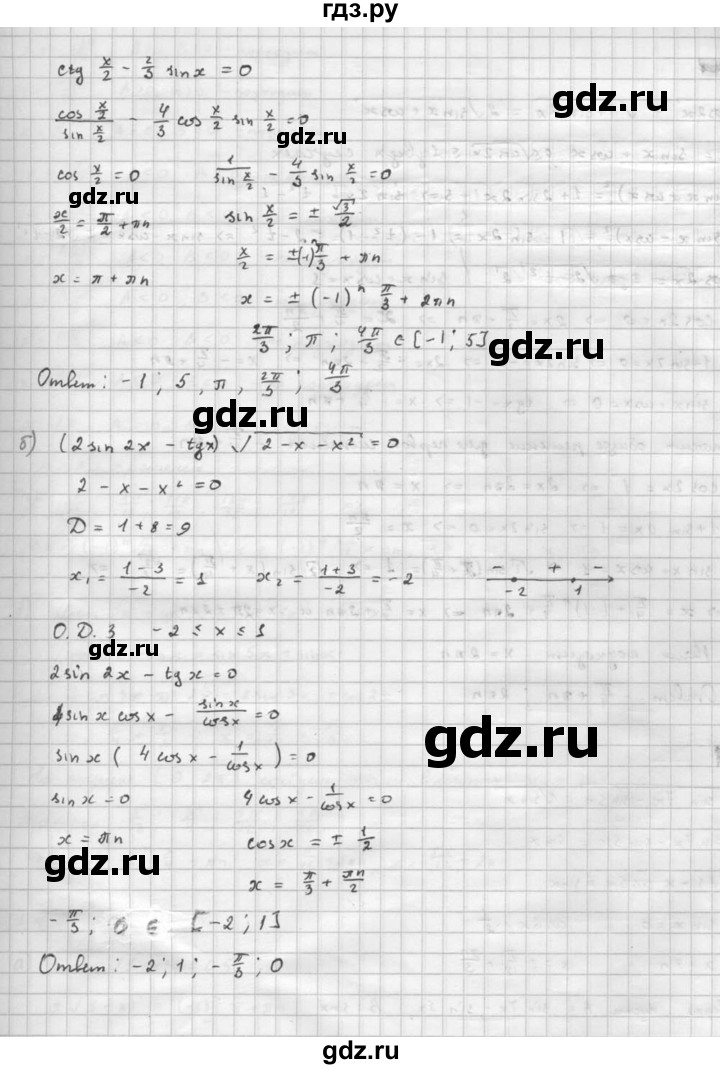 гдз.ру
ctg x/2 - 2/3 sin x = 0
cos x/2 / sin x/2 - 4/3 cos x/2 sin x/2 = 0
cos x/2 = 0    1 / sin x/2 - 4/3 sin x/2 = 0
gdz.ru
x/2 = π/2 + πn    sin x/2 = ± √3/2
x/2 = ±(-1)ⁿ π/3 + πn
x = π + πn    x = ± (-1)ⁿ π/3 + 2πn
2π/3 ; π ; 4π/3 ∈ [-1 ; 5]
gdz.ru
Ответ: -1 ; 5 , π , 2π/3 ; 4π/3
gdz.ru
б) (2 sin 2x - tg x) √(2 - x - x²) = 0
2 - x - x² = 0
D = 1 + 8 = 9
x₁ = (1 - 3)/-2 = 1    x₂ = (1 + 3)/-2 = -2    - + -
-2    1
О.Д.З -2 ≤ x ≤ 1
gdz.ru
2 sin 2x - tg x = 0
4 sin x cos x - sin x / cos x = 0
gdz.ru
sin x ( 4 cos x - 1/cos x ) = 0
sin x = 0    4 cos x - 1/cos x = 0
x = πn    cos x = ± 1/2
gdz.ru
x = π/3 + πn/2
- π/3 ; 0 ∈ [-2 ; 1]
Ответ: -2 ; 1 ; - π/3 ; 0
gdz.ru